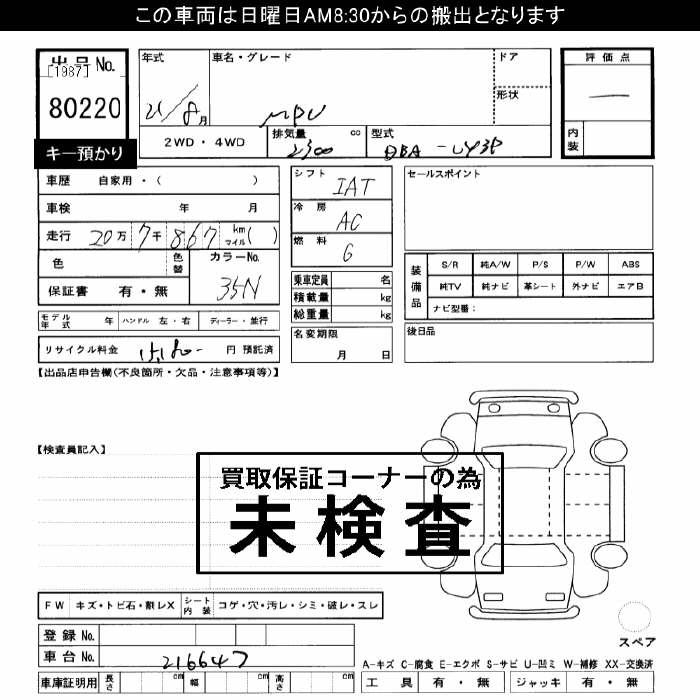 この車両は日曜日AM8:30からの搬出となります
出品号 No.
[1987]
80220
キー預かり
年式
21/8月
車名・グレード
MPV
ドア
形状
評価点
―
内装
2WD・4WD
排気量 cc
2300
型式
DBA-LY3P
車歴 自家用・( )
車検 年 月
走行 20万 7千 867 km マイル( )
色 色替 カラーNo.
35N
保証書 有・無
シフト
IAT
冷房
AC
燃料
G
乗車定員 名
積載量 kg
総重量 kg
名変期限
月 日
セールスポイント
装備品
S/R 純A/W P/S P/W ABS
純TV 純ナビ 革シート 外ナビ エアB
ナビ型番:
後日品
モデル年式 年 ハンドル 左・右 ディーラー・並行
リサイクル料金 円 預託済
【出品店申告欄(不良箇所・欠品・注意事項等)】
【検査員記入】
買取保証コーナーの為
未検査
FW キズ・トビ石・割レX シート内装 コゲ・穴・汚レ・シミ・破レ・スレ
登録 No.
車台 No.
216647
車庫証明用 長さ cm 幅 cm 高さ cm
スペア
A-キズ C-腐食 E-エクボ S-サビ U-凹ミ W-補修 XX-交換済
工具 有・無 ジャッキ 有・無